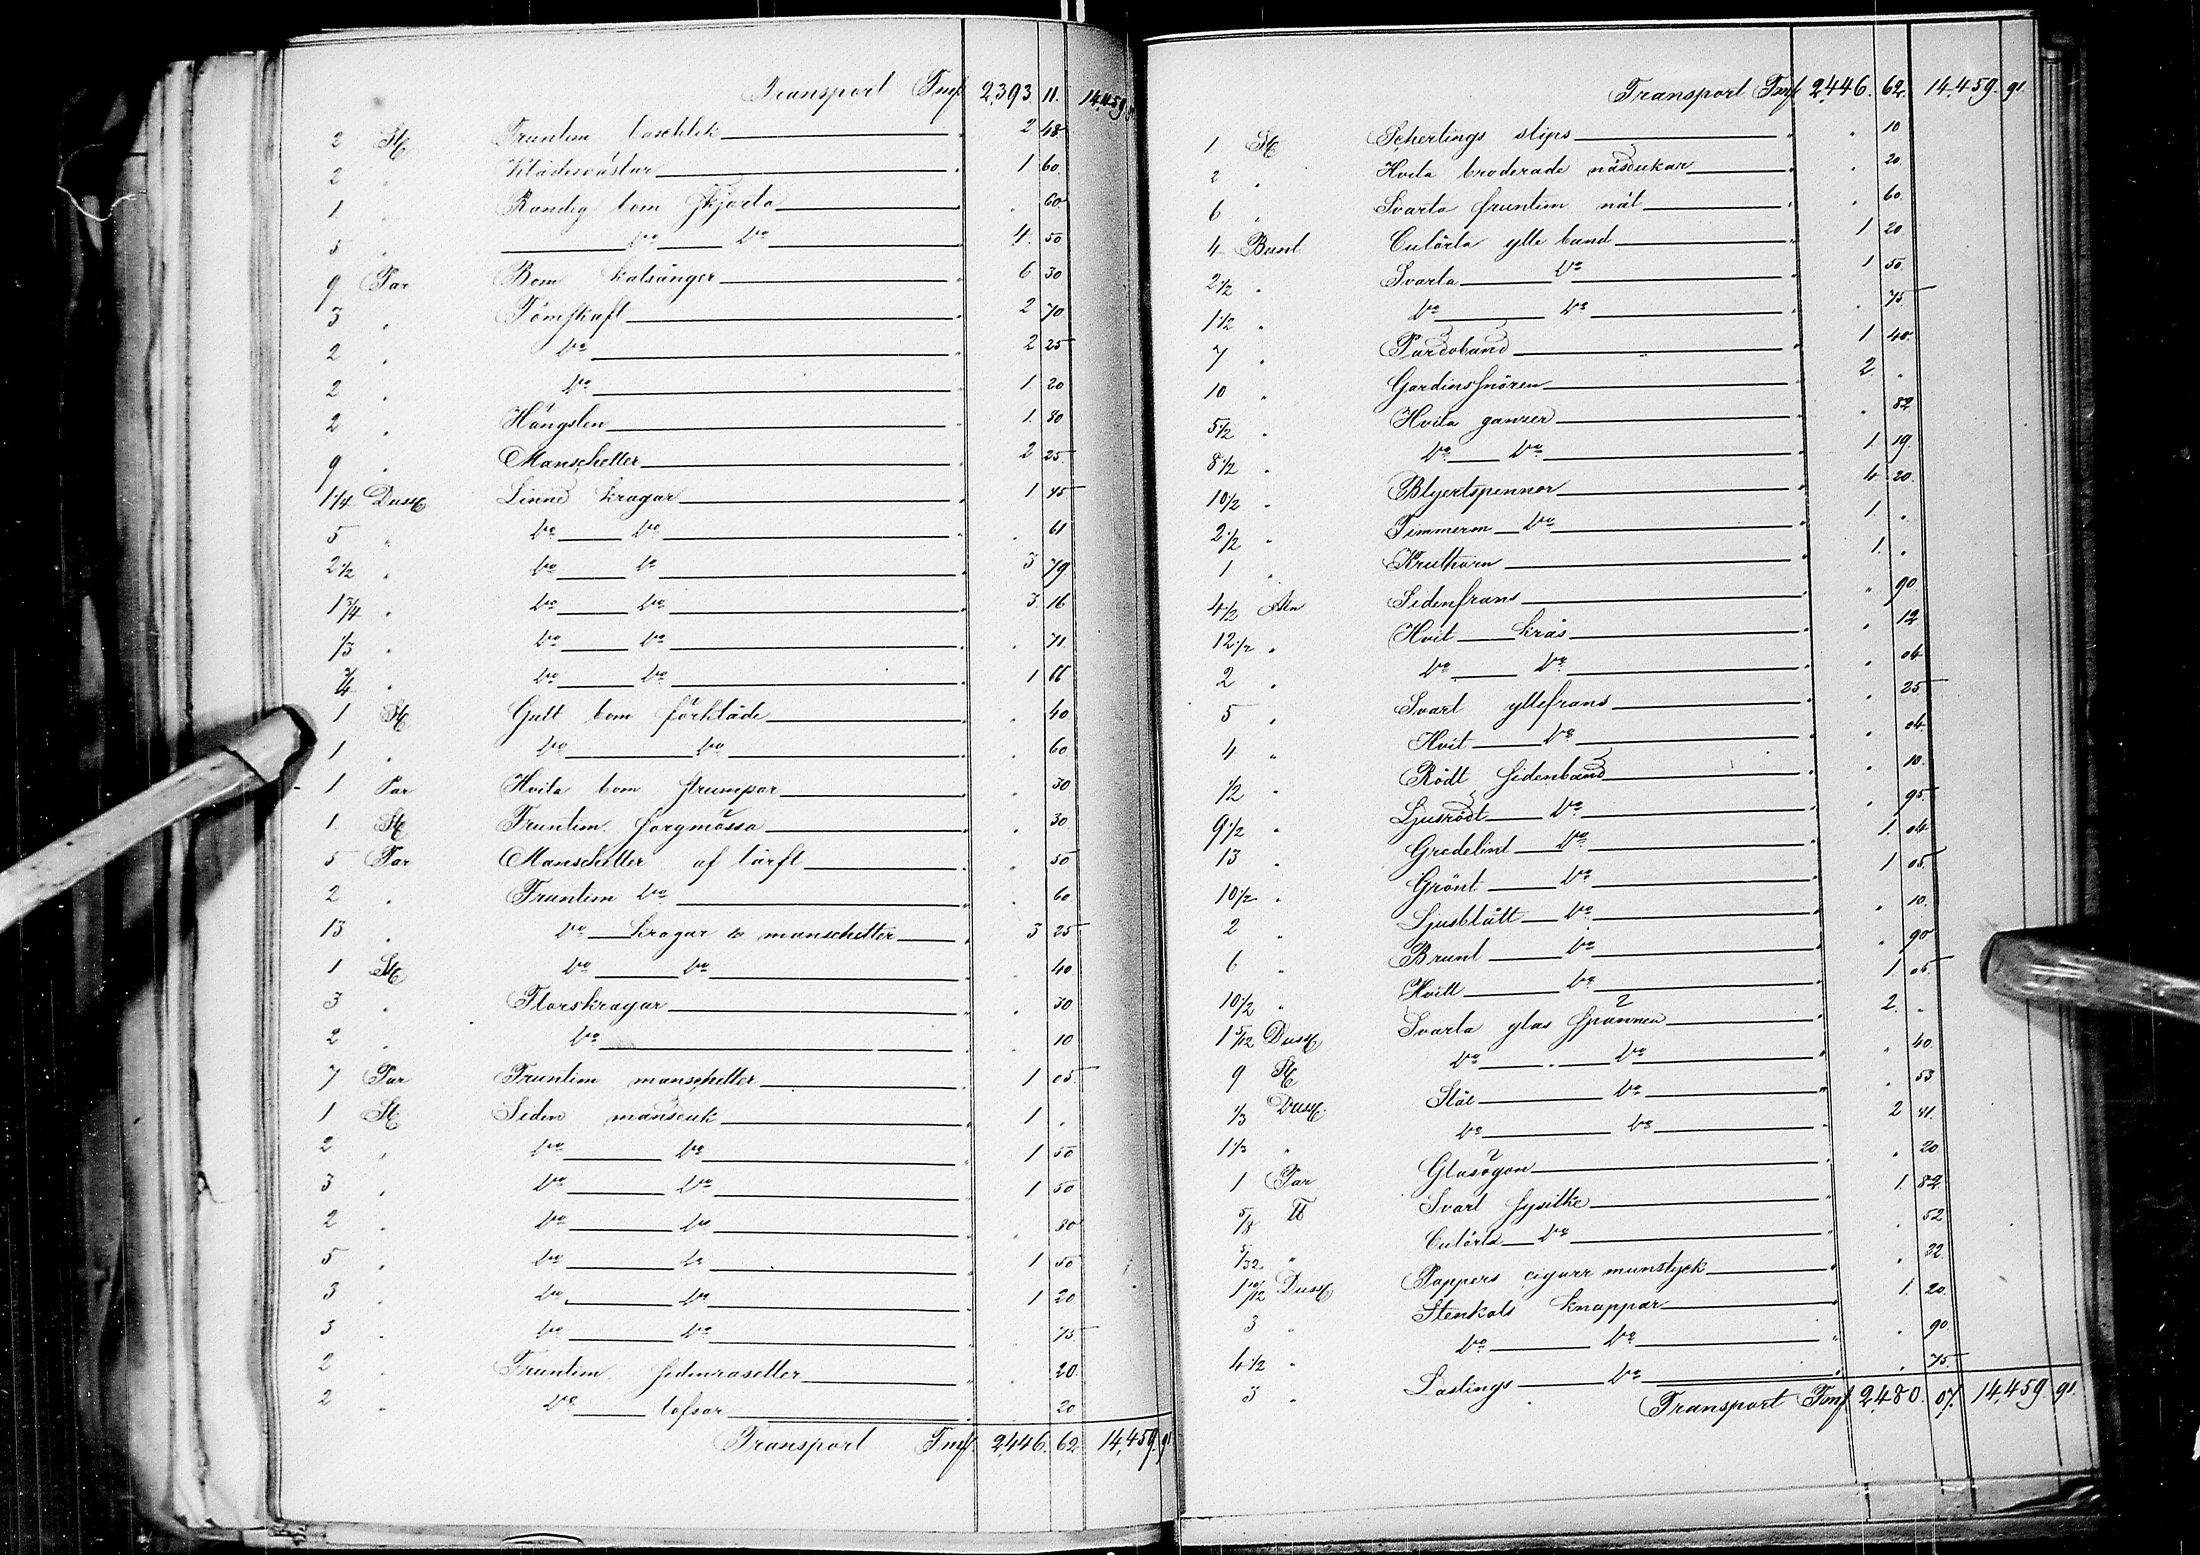 Transport Fmf 2,393 11. 14,459. 91
2 St Fruntim baschlik " 2 48
2 " Klädesvästar " 1 60
1 " Randig bom skjorta " " 60
5 " Do Do " 4. 50
9 Par Bom kalsånger " 6 30
3 " Tömskaft " 2 70
2 " Do " 2 25
2 " Do " 1 20
2 " Hängslen " 1. 80
9 " Manschetter " 2 25
1 1/4 Duss Linne kragar " 1 45
5 " Do Do " " 61
2 1/2 " Do Do " 3 79
1 3/4 " Do Do " 3. 16
1/3 " Do Do " " 71
3/4 " Do Do " 1 66
1 St Gult bom förkläde " " 40
1 " Do Do " " 60
1 Par Hvita bom strumpor " " 30
1. St Fruntim. sorgmössa " " 30
5 Par Manschetter af lärft " " 50
2 " Fruntim Do " " 60
13 " Do kragar & manschetter " 3 25
1 St Do Do " " 40
3 " Florskragar " " 30
2 " Do " " 10
7 Par Fruntim manschetter " 1 05
1 St Siden mansduk " 1 "
2 " Do Do " 1 50
3 " Do Do " 1 50
2 " Do Do " " 80
5 " Do Do " 1 50
3 " Do Do " 1 20
3 " Do Do " " 75
2 " Fruntim sidenrasetter " " 20
2 " Do tofsar " " 20
Transport Fmf. 2,446. 62 14,459. 91
Transport Fmf 2,446. 62. 14,459. 91
1 St Schertings slips " " 10
2 " Hvita broderade näsdukar " " 20
6 " Svarta fruntim nät " " 60
4 Bunt Culörta ylle band " 1 20
2 1/2 " Svarta Do " 1 50
1 1/2 " Do Do " " 75
7 " Pardoband " 1 40
10 " Gardinssnören " 2. "
5 1/2 " Hvita ganser " " 82
8 1/2 " Do Do " 1 19
10 1/2 " Blyertspennor " 4 20
2 1/2 " Timmerm Do " 1. "
1 " Kruthorn " 1. "
4 1/2 Aln Sidenfrans " " 90
12 1/2 " Hvit krås " " 12
2 " Do Do " " 04
5 " Svart yllefrans " " 25
4 " Hvit Do " " 04
1/2 " Rödt sidenband " " 10
9 1/2 " Ljusrödt Do " " 95
13 " Gredelint Do " 1. 04
10 1/2 " Grönt Do " 1 05
2 " Ljusblått Do " " 10
6 " Brunt Do " " 90
10 1/2 " Hvitt Do " 1 05
1 5/12 Duss Svarta glas spännen " 2. "
9 St Do Do " " 40
1/3 Duss Stål Do " " 53
1 1/3 " Do Do " 2 41
1 Par Glasögon " " 20
5/8 ℔ Svart sysilke " 1. 82
5/32 " Culörta Do " " 52
1 10/12 Duss Pappers cigarr munstyck " " 22
3 " Stenkols knappar " 1. 20
4 1/2 " Do Do " " 90
3 " Lastings Do " " 75
Transport Fmf 2,480. 07. 14,459. 91.